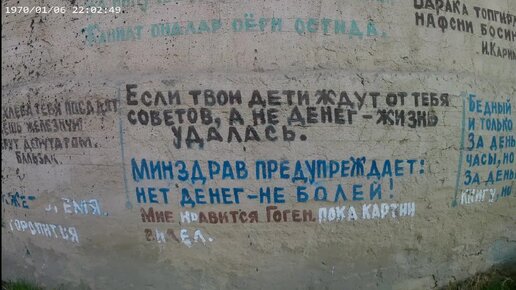 1970/01/06 22:02:49
ДАРАКА ТОПГИБ
НАФСИ БОСИ
И.КАРИМ
ЖАННАТ ОНАЛАР ОЁҒИ ОСТИДА.
ХЛЕБА ТЕБЯ ПОСАДЯТ
ЕШЬ ЖЕЛЕЗНУЮ
УТ ДЕПУТАТОМ.
БАЛЬЗАК.
ЕСЛИ ТВОИ ДЕТИ ЖДУТ ОТ ТЕБЯ
СОВЕТОВ, А НЕ ДЕНЕГ - ЖИЗНЬ
УДАЛАСЬ.
МИНЗДРАВ ПРЕДУПРЕЖДАЕТ:
НЕТ ДЕНЕГ - НЕ БОЛЕЙ!
МНЕ НРАВИТСЯ ГОГЕН, ПОКА КАРТИН
ВИДЕЛ.
ТОРОПИТСЯ
БЕДНЫЙ
И ТОЛЬКО
ЗА ДЕНЬ
ЧАСЫ, НО
ЗА ДЕНЬ
КНИГУ